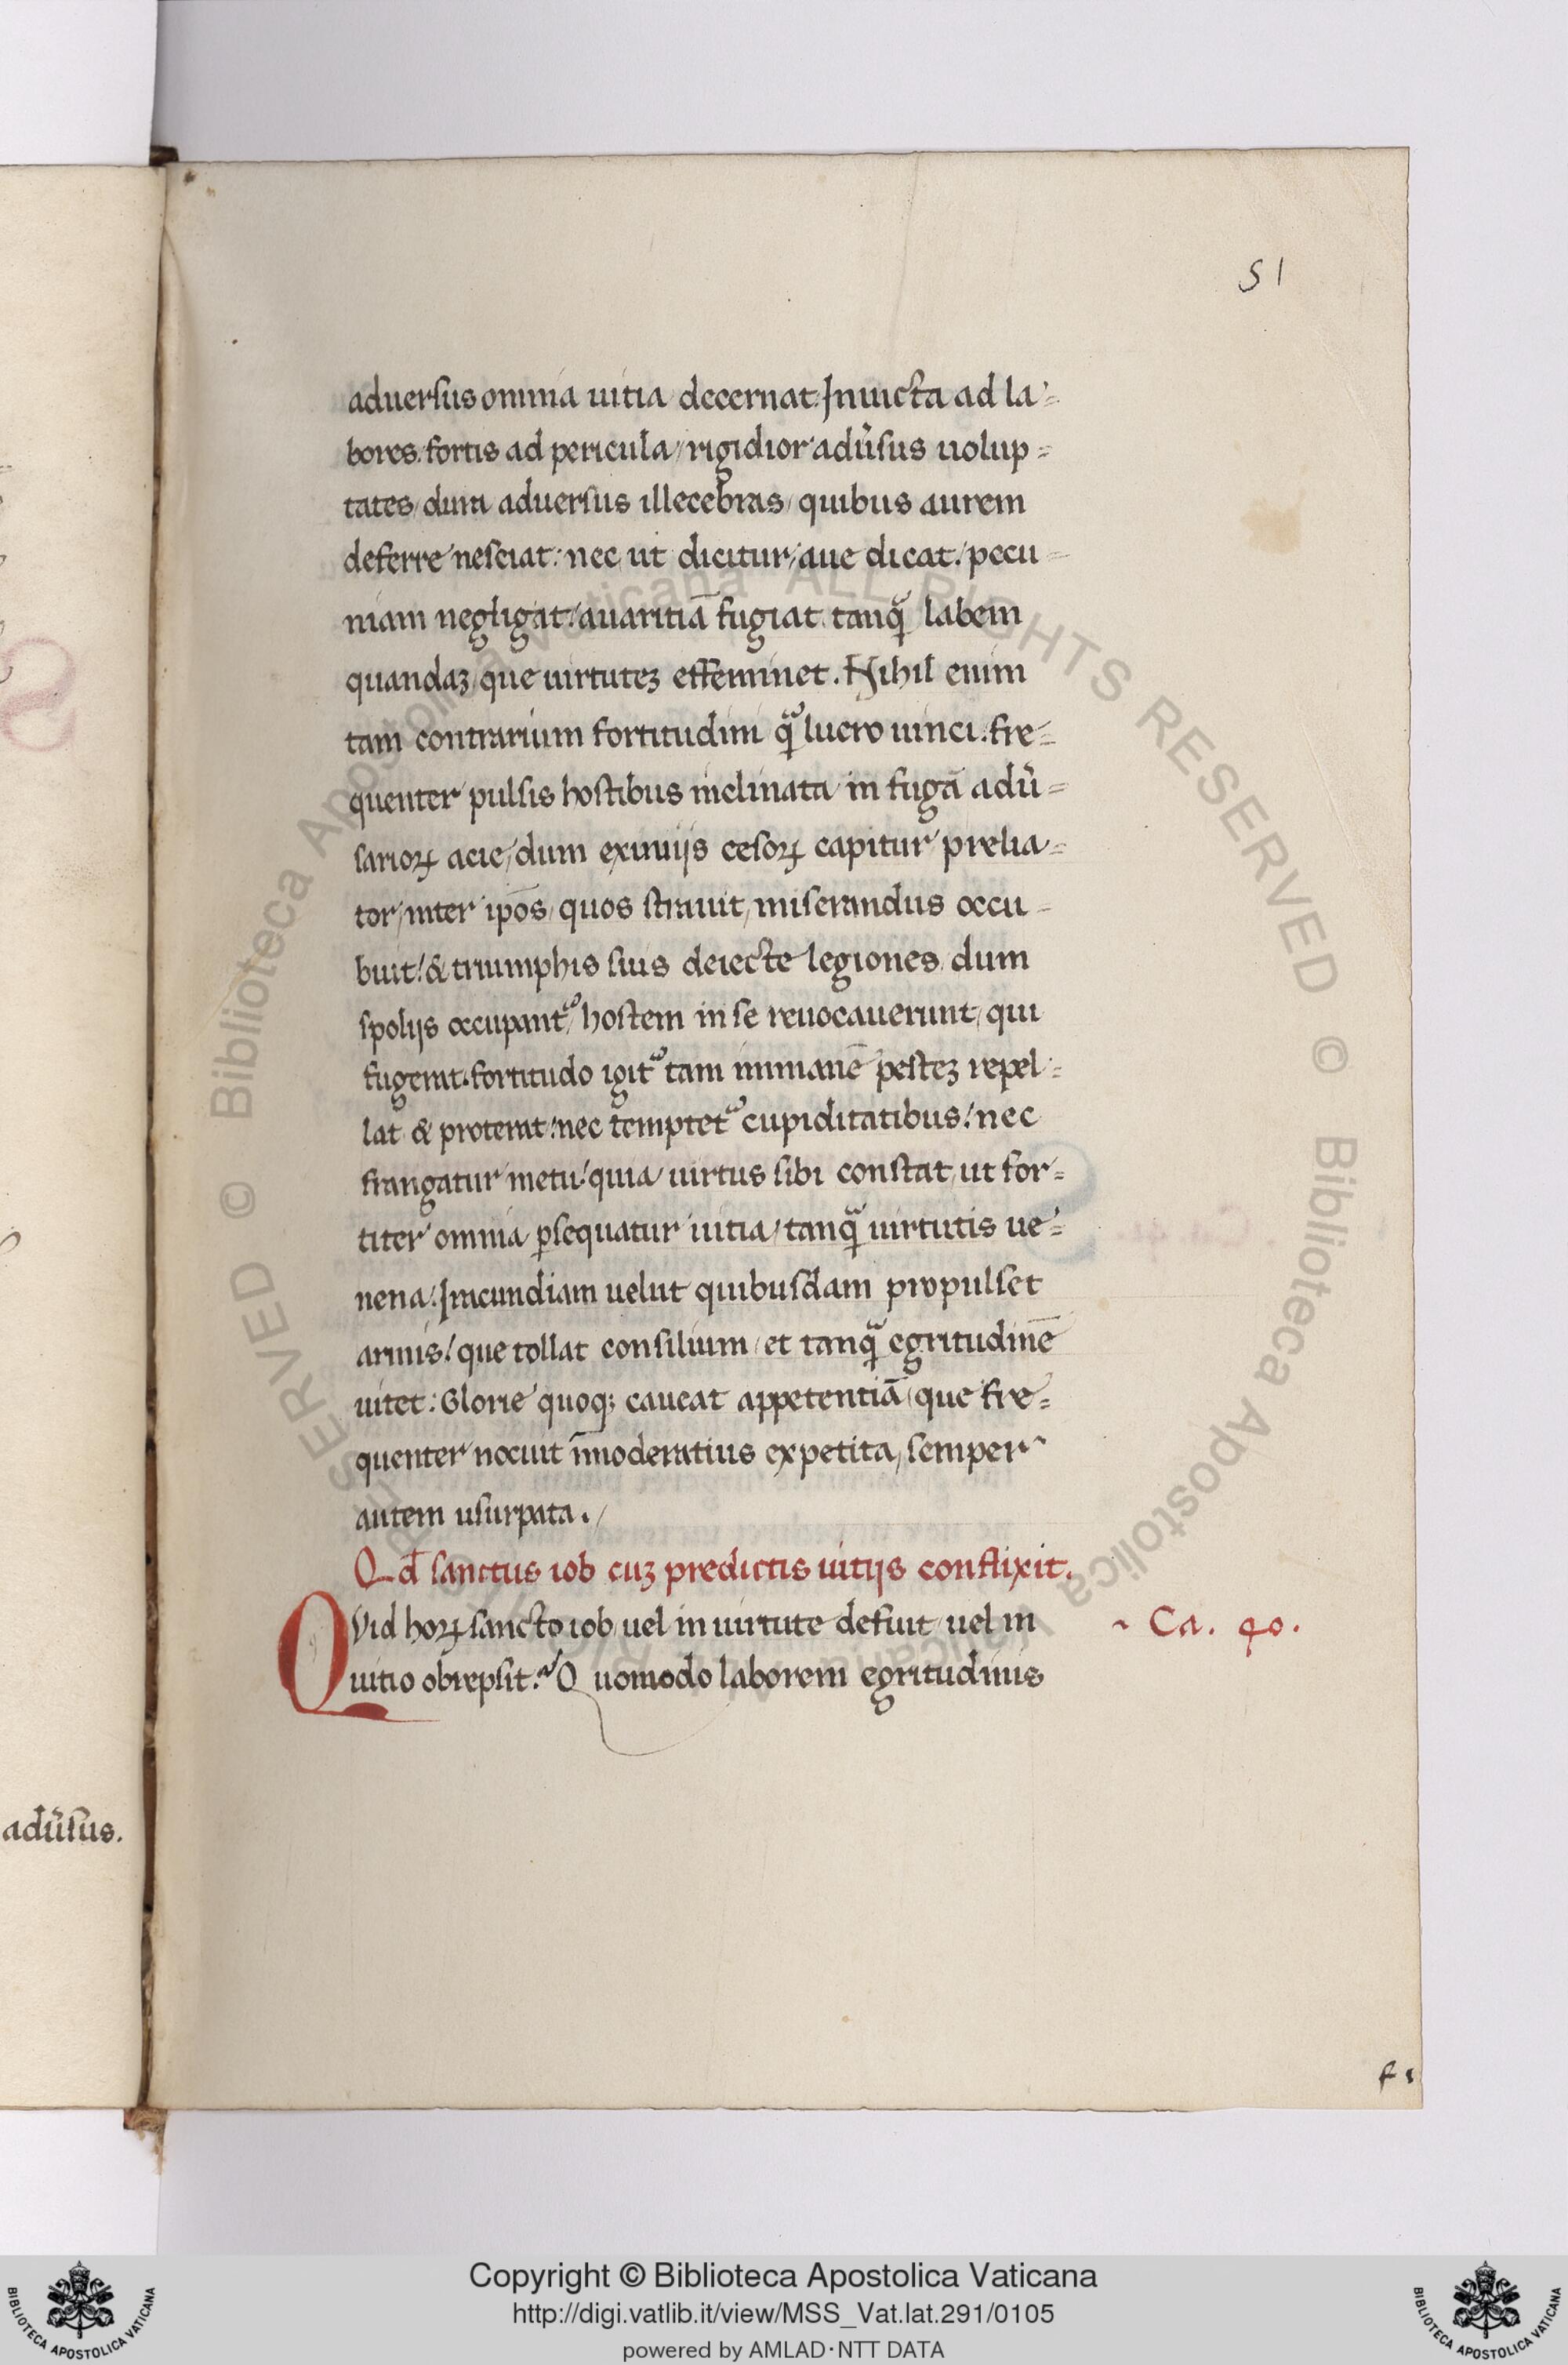 51
aduersus omnia uitia decernat. Inuicta ad la-
bores. fortis ad pericula, rigidior adũsus uolup=
tates, dura aduersus illecebras, quibus aurem
deferre nesciat: nec ut dicitur, aue dicat. pecu=
niam negligat: auaritiã fugiat tanqᷓ labem
quandaꝫ, que uirtuteꝫ effeminet. Nihil enim
tam contrarium fortitudini qᷓ lucro uinci. fre=
quenter pulsis hostibus inclinata in fugã adũ=
sarioꝝ acie, dum exuuijs cesoꝝ capitur prelia=
tor, inter ip̄os, quos strauit, miserandus occu-
buit: & triumphis suis deiecte legiones, dum
spolijs occupant᷑, hostem in se reuocauerunt, qui
fugerat. fortitudo igit᷑ tam immanẽ pesteꝫ repel=
lat & proterat: nec temptet᷑ cupiditatibus: nec
frangatur metu: quia uirtus sibi constat, ut for=
titer omnia ꝑsequatur uitia, tanqᷓ uirtutis ue=
nena. Iracundiam uelut quibusdam propulset
armis: que tollat consilium, et tanqᷓ egritudinẽ
uitet: Glorie quoqꝫ caueat appetentiã, que fre=
quenter nocuit ĩmoderatius expetita, semper
autem usurpata.
Qd̄ sanctus iob cuꝫ predictis uitijs conflixit.
QVid hoꝝ sancto iob, uel in uirtute defuit, uel in
Ca. 40.
uitio obrepsit? Quomodo laborem egritudinis
adũsus.
f 1
© Biblioteca Apostolica Vaticana ALL RIGHTS RESERVED
Copyright © Biblioteca Apostolica Vaticana
http://digi.vatlib.it/view/MSS_Vat.lat.291/0105
powered by AMLAD·NTT DATA
BIBLIOTECA APOSTOLICA VATICANA
BIBLIOTECA APOSTOLICA VATICANA